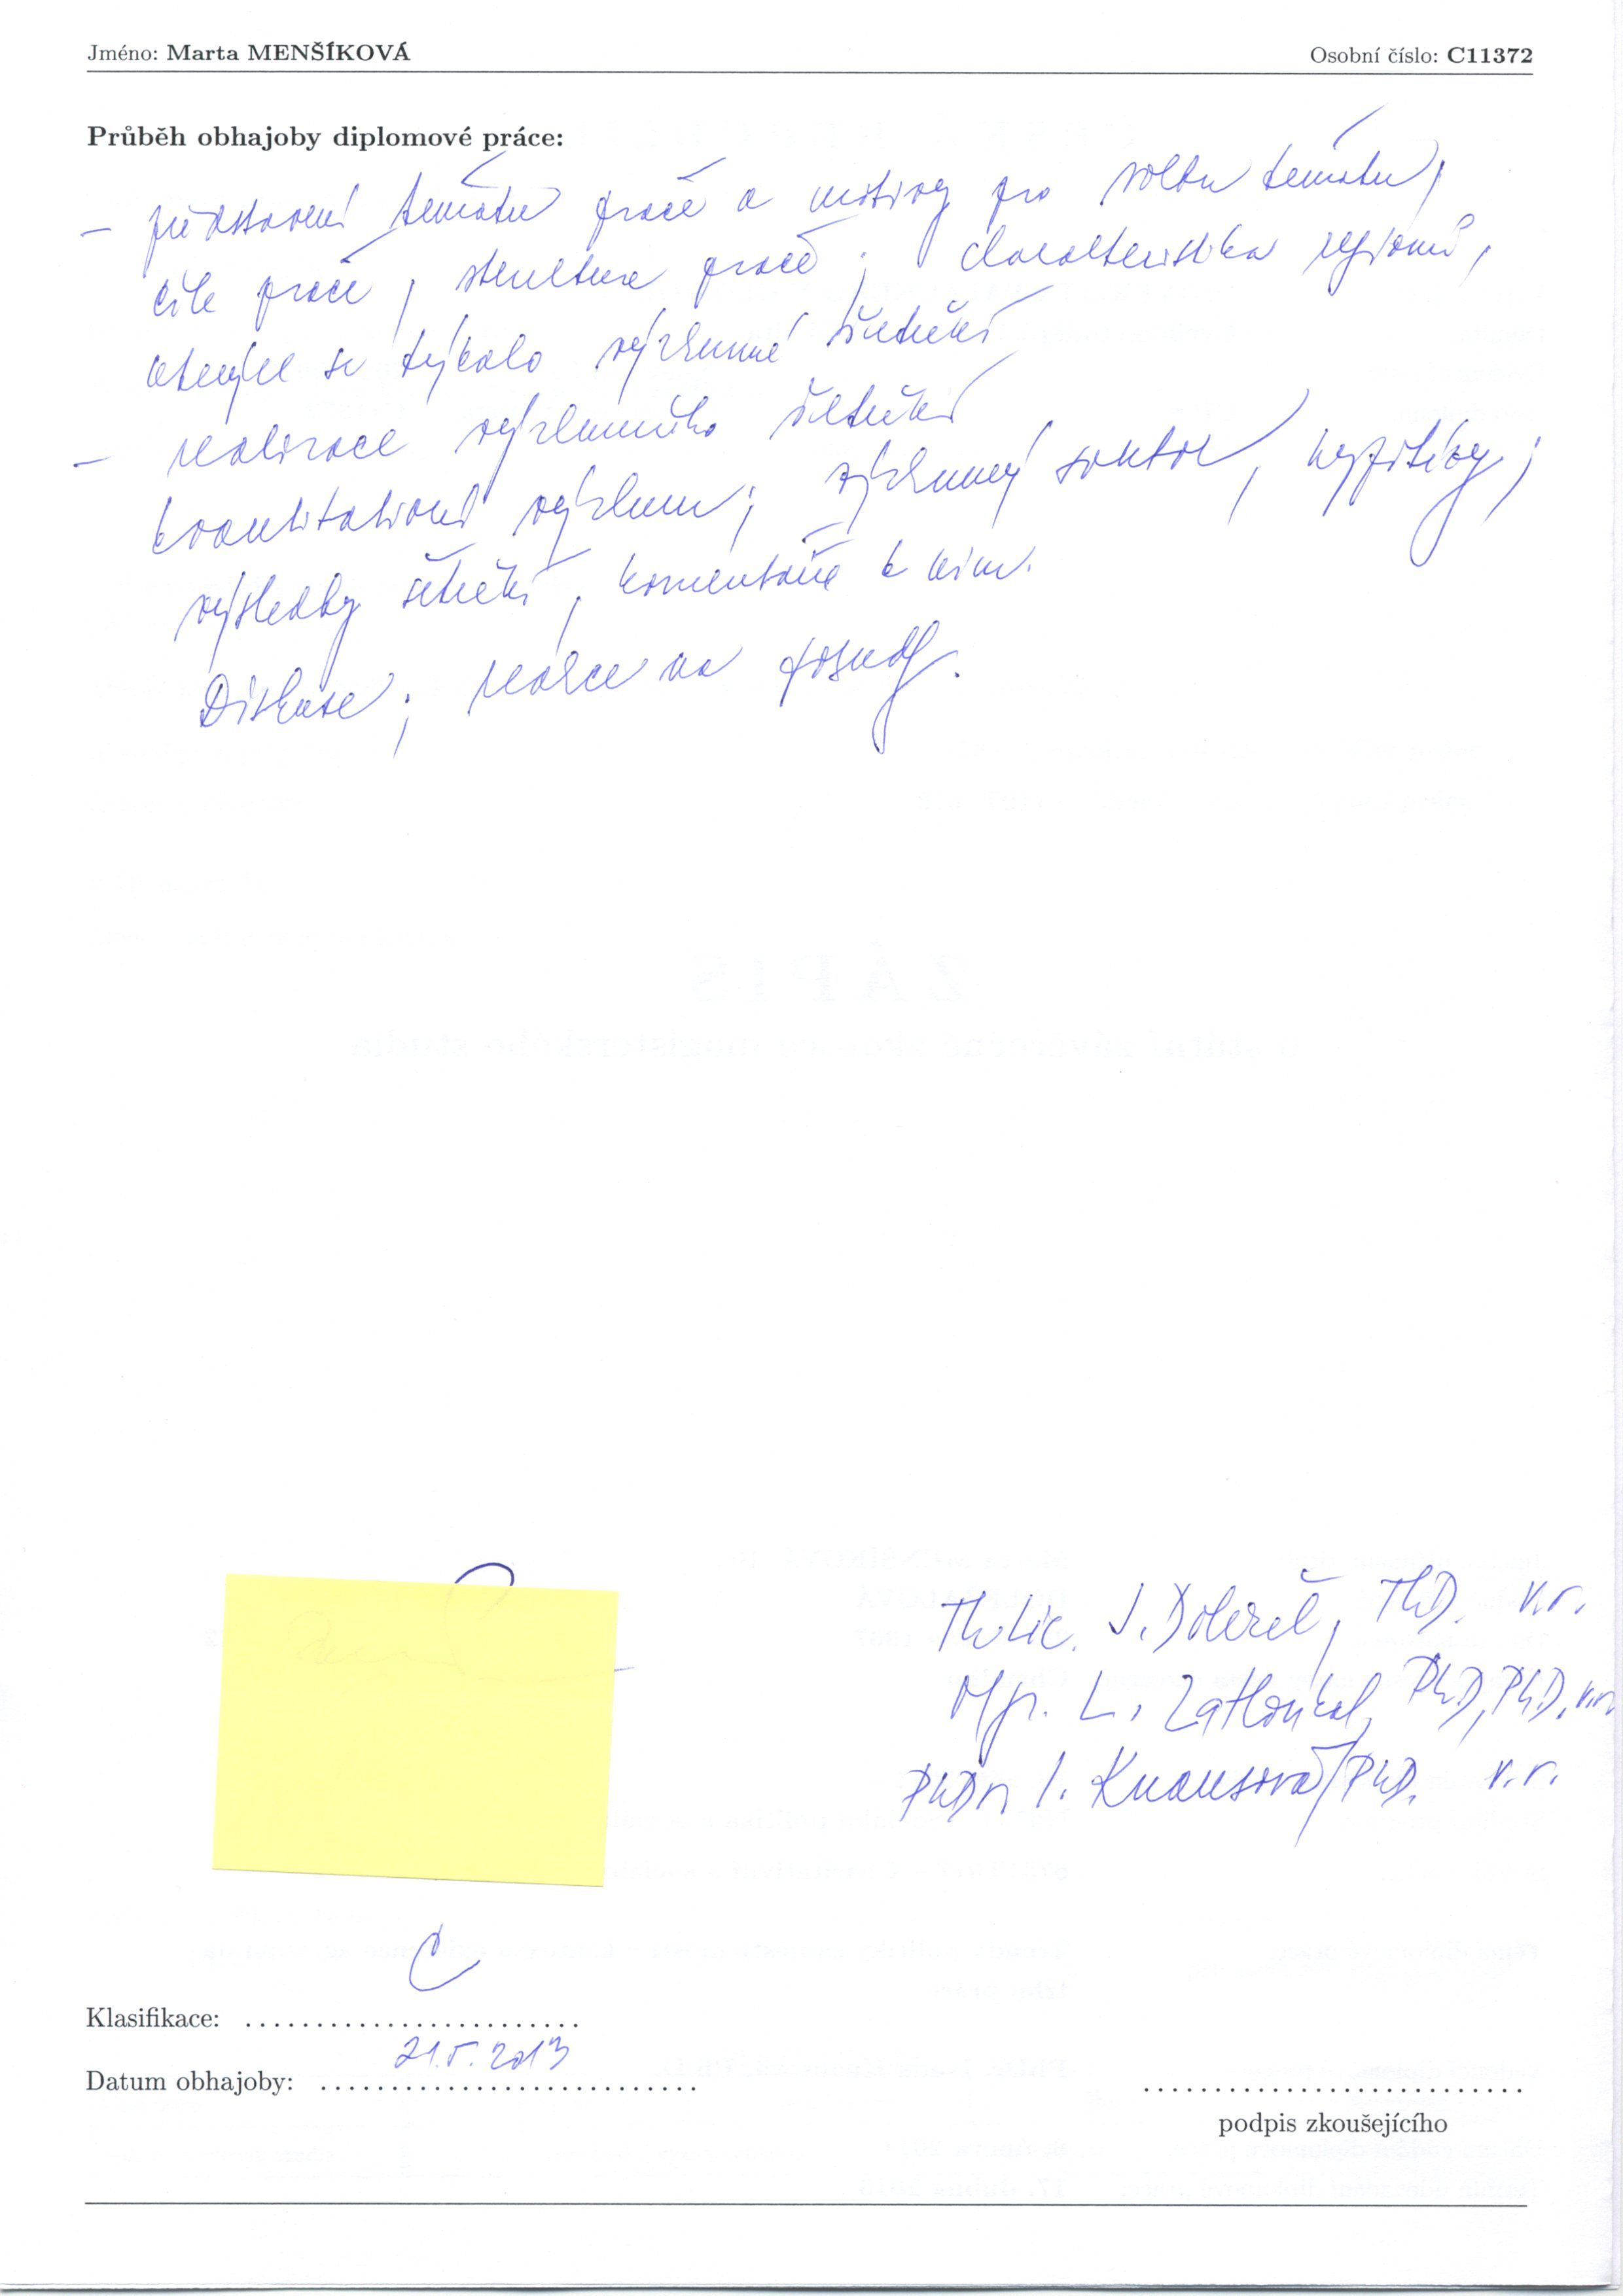 Jméno: Marta MENŠÍKOVÁ Osobní číslo: C11372
Průběh obhajoby diplomové práce:
– představení tématu práce a motivy pro volbu tématu,
cíle práce, struktura práce; charakteristika regionů,
kterých se týkalo výzkumné šetření
– realizace výzkumného šetření
kvantitativní výzkum; výzkumný soubor, hypotézy;
výsledky šetření, komentáře k nim.
Diskuse; reakce na posudky.
ThLic. J. Doležel, ThD. v.r.
Mgr. L. Zatloukal, PhD, PhD. v.r.
PhDr I. Knausová PhD. v.r.
C
Klasifikace: ........................
21.5.2013
Datum obhajoby: ...........................
...........................
podpis zkoušejícího